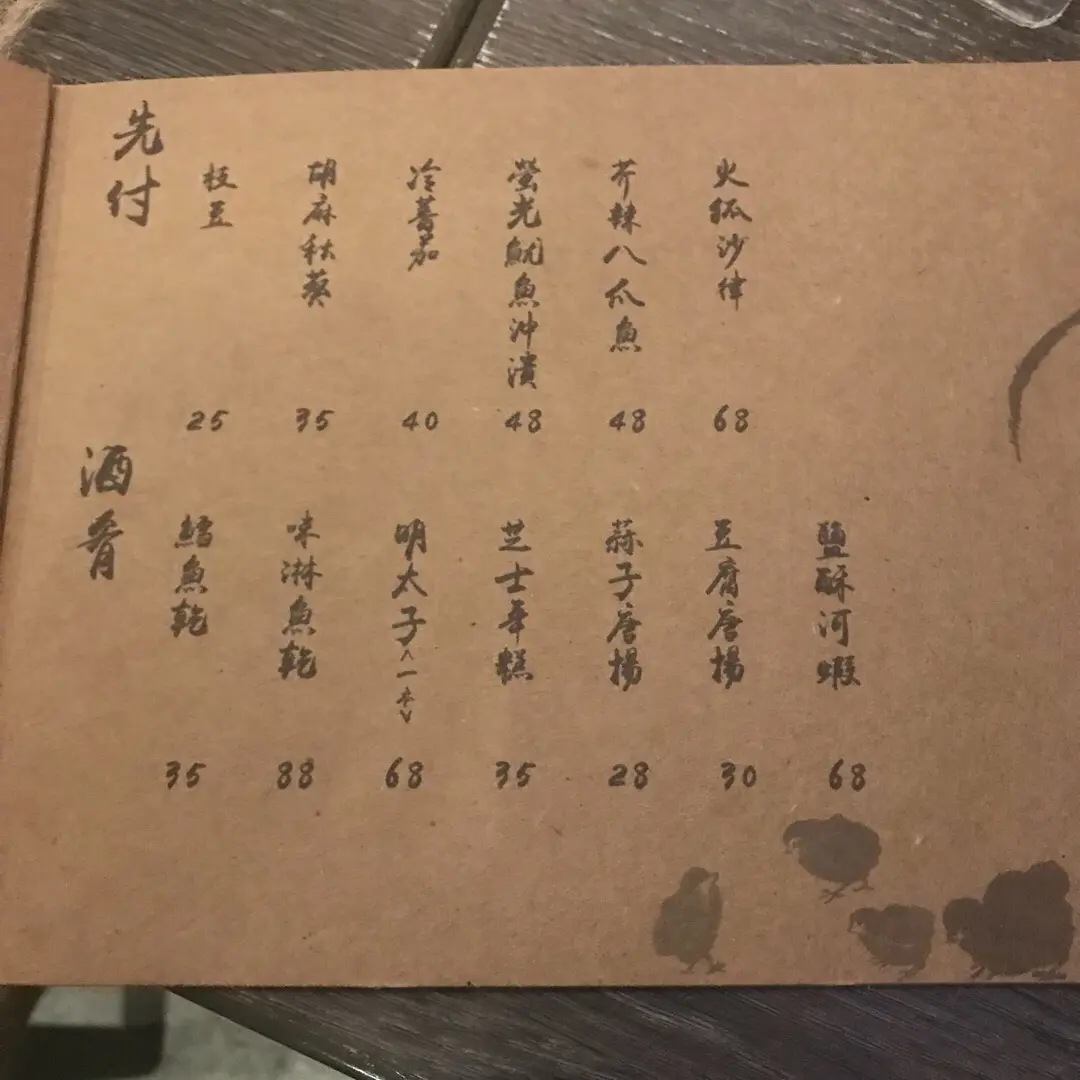 先付
枝豆 25
胡麻秋葵 35
冷蕃茄 40
螢光魷魚沖漬 48
芥辣八爪魚 48
火狐沙律 68
酒肴
鱈魚乾 35
味淋魚乾 88
明太子<一本> 68
芝士年糕 35
蒜子唐揚 28
豆腐唐揚 30
鹽酥河蝦 68